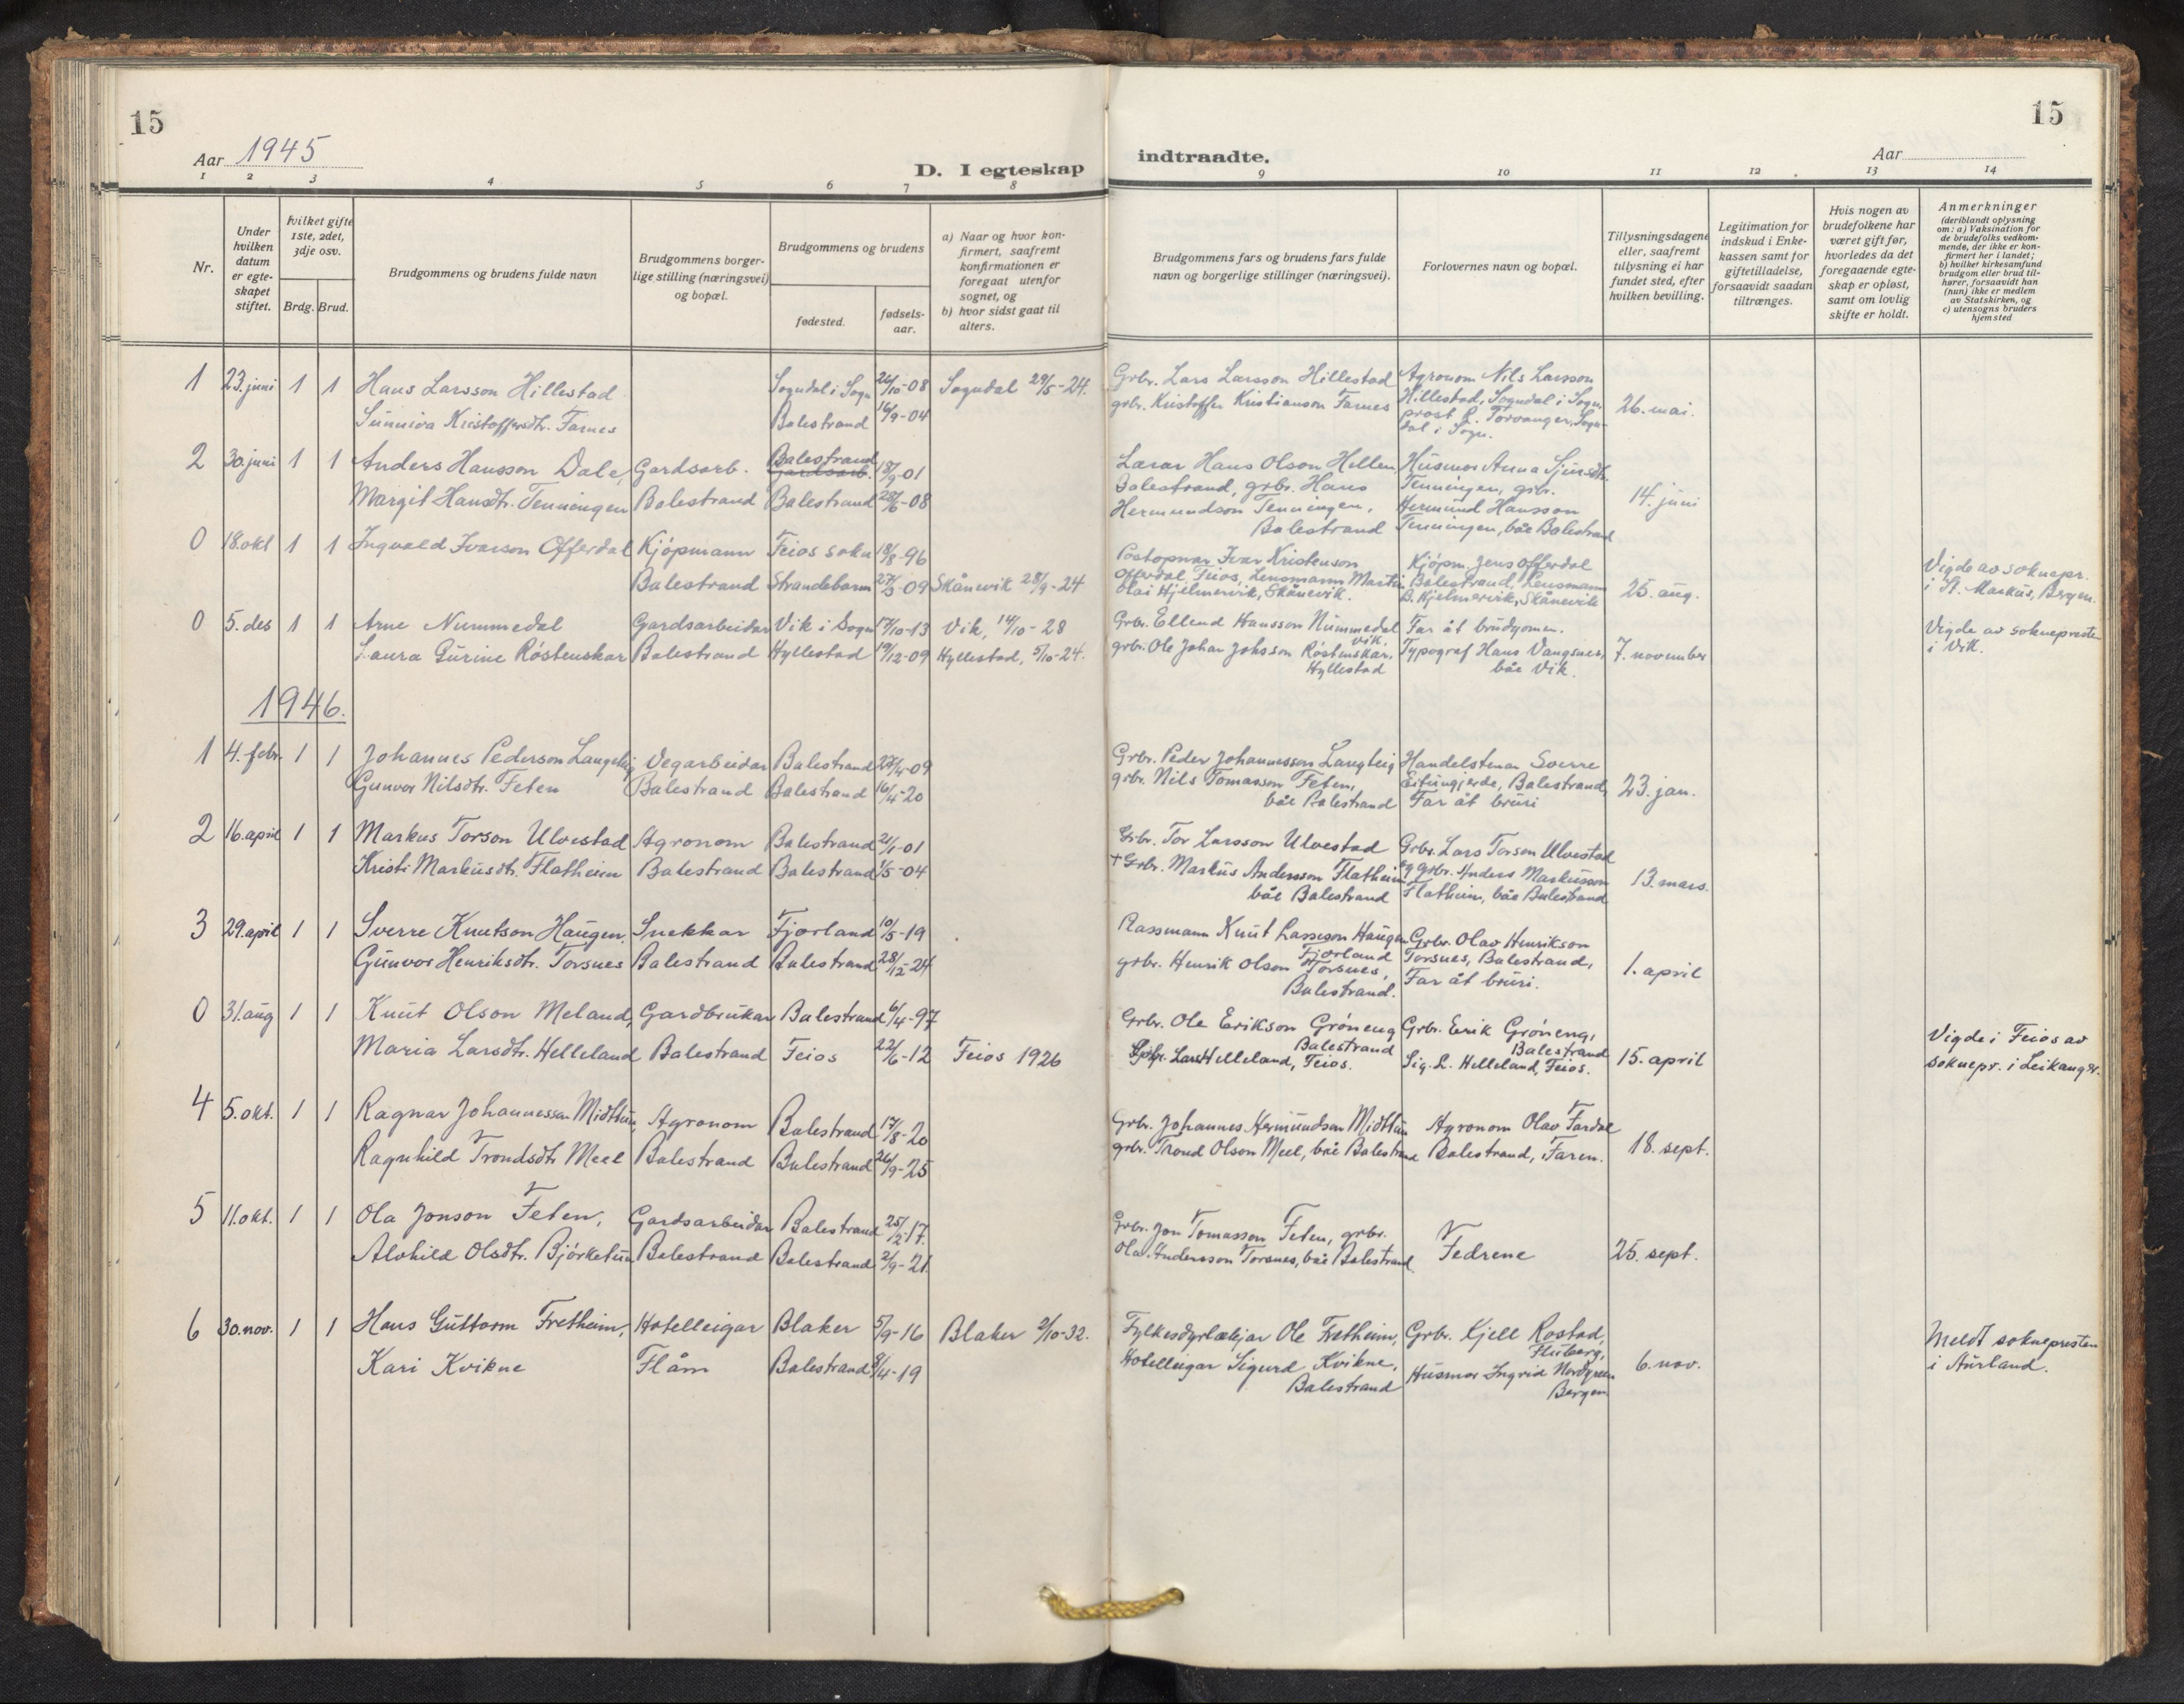 15
Aar 1945
D. I egteskap
indtraadte.
Aar
15
1 2 3 4 5 6 7 8 9 10 11 12 13 14
Nr.
Under hvilken datum er egteskapet stiftet.
Hvilket gifte 1ste, 2det, 3dje osv.
Brdg. Brud.
Brudgommens og brudens fulde navn
Brudgommens borgerlige stilling (næringsvei) og bopæl.
Brudgommens og brudens
fødested.
fødselsaar.
a) Naar og hvor konfirmert, saafremt konfirmationen er foregaat utenfor sognet, og
b) hvor sidst gaat til alters.
Brudgommens fars og brudens fars fulde navn og borgerlige stillinger (næringsvei).
Forlovernes navn og bopæl.
Tillysningsdagene eller, saafremt tillysning ei har fundet sted, efter hvilken bevilling.
Legitimation for indskud i Enkekassen samt for giftetilladelse, forsaavidt saadan tiltrænges.
Hvis nogen av brudefolkene har været gift før, hvorledes da det foregaaende egteskap er opløst, samt om lovlig skifte er holdt.
Anmerkninger
(deriblandt oplysning om: a) Vaksination for de brudefolks vedkommende, der ikke er konfirmert her i landet; b) hvilket kirkesamfund brudgom eller brud tilhører, forsaavidt han (hun) ikke er medlem av Statskirken, og c) utensogns bruders hjemsted
1 23. juni 1 1 Hans Larsson Hillestad Sogndal i Sogn 26/10-08 Sogndal 29/5-24. Grbr. Lars Larsson Hillestad Agronom Nils Larsson
Sunniva Kristoffersdtr. Farnes Balestrand 16/9-04 grbr. Kristoffer Kristianson Farnes Hillestad, Sogndal i Sogn, 26. mai.
prost R. Torvanger, Sogn-
dal i Sogn.
2 30. juni 1 1 Anders Hansson Dale, Gardsarb. Balestrand Gardsarb. 18/9-01 Lærar Hans Olson Hellen Husmor Anna Sjursdtr.
Margit Hansdtr. Tenningen Balestrand Balestrand 28/6-08 Balestrand, grbr. Hans Tenningen, grbr. 14. juni
Hermundson Tenningen, Hermund Hansson
Balestrand Tenningen, båe Balestrand
0 18. okt 1 1 Ingvald Ivarson Offerdal Kjøpmann Feios sokn 18/8-96 Postopnar Ivar Kristenson Kjøpm. Jens Offerdal Vigde av soknepr.
Balestrand Strandebarm 27/3-09 Skånevik 28/9-24 Offerdal, Feios, Lensmann Martin Balestrand, Lensmann 25. aug. i St. Markus, Bergen.
Olai Hjelmervik, Skånevik. B. Hjelmervik, Skånevik
0 5. des 1 1 Arne Nummedal Gardsarbeidar Vik i Sogn 17/10-13 Vik, 14/10-28 Grbr. Ellend Hansson Nummedal Far åt brudgomen. Vigde av soknepresten
Vik.
Laura Gurine Røstenskar Balestrand Hyllestad 19/12-09 Hyllestad, 5/10-24. grbr. Ole Johan Johsson Røstenskar, Typograf Hans Vangsnes, 7. november i Vik.
Hyllestad båe Vik.
1946.
1 4. febr. 1 1 Johannes Pederson Langeteig Vegarbeidar Balestrand 27/4-09 Grbr. Peder Johannesson Langteig Handelsman Sverre
Gunvor Nilsdtr. Feten Balestrand Balestrand 16/4-20 grbr. Nils Tomasson Feten, Eitungjerde, Balestrand, 23. jan.
båe Balestrand Far åt bruri
2 16. april 1 1 Markus Torson Ulvestad Agronom Balestrand 21/1-01 Grbr. Tor Larsson Ulvestad Grbr. Lars Torson Ulvestad
Kristi Markusdtr. Flatheim Balestrand Balestrand 1/5-04 + Grbr. Markus Andersson Flatheim og grbr. Anders Markusson 13. mars.
båe Balestrand Flatheim, båe Balestrand
3 29. april 1 1 Sverre Knutson Haugen, Snekkar Fjærland 10/5-19 Rassmann Knut Lasseson Haugen Grbr. Olav Henrikson
Fjærland
Gunvor Henriksdtr. Torsnes Balestrand Balestrand 28/12-24 grbr. Henrik Olson Torsnes, Torsnes, Balestrand, 1. april
Balestrand. Far åt bruri.
0 31. aug 1 1 Knut Olson Meland, Gardbrukar Balestrand 6/4-97 Grbr. Ole Erikson Grøneng Grbr. Erik Grøneng, Vigde i Feios av
Balestrand Balestrand
Maria Larsdtr. Helleland Balestrand Feios 22/6-12 Feios 1926 Lars Helleland, Feios. Sig. L. Helleland, Feios. 15. april soknepr. i Leikanger.
4 5. okt. 1 1 Ragnar Johannesson Midttun, Agronom Balestrand 17/8-20 Grbr. Johannes Hermundson Midttun Agronom Olav Fardal
Ragnhild Trondsdtr Meel Balestrand Balestrand 26/9-25 grbr. Trond Olson Meel, båe Balestrand Balestrand, Faren. 18. sept.
5 11. okt. 1 1 Ola Jonson Feten, Gardsarbeidar Balestrand 25/2-17. Grbr. Jon Tomasson Feten, grbr.
Alvhild Olsdtr. Bjørketun Balestrand Balestrand 2/9-21. Ola Andersson Torsnes, båe Balestrand. Fedrene 25. sept.
6 30. nov. 1 1 Hans Guttorm Fretheim, Hotelleigar Blaker 5/9-16 Blaker 2/10-32. Fylkesdyrlækjar Ole Fretheim, Grbr. Kjell Rostad, Meldt soknepresten
Fluberg,
Kari Kvikne Flåm Balestrand 8/4-19 Hotelleigar Sigurd Kvikne, Husmor Ingrid Nordgreen 6. nov. i Aurland.
Balestrand Bergen